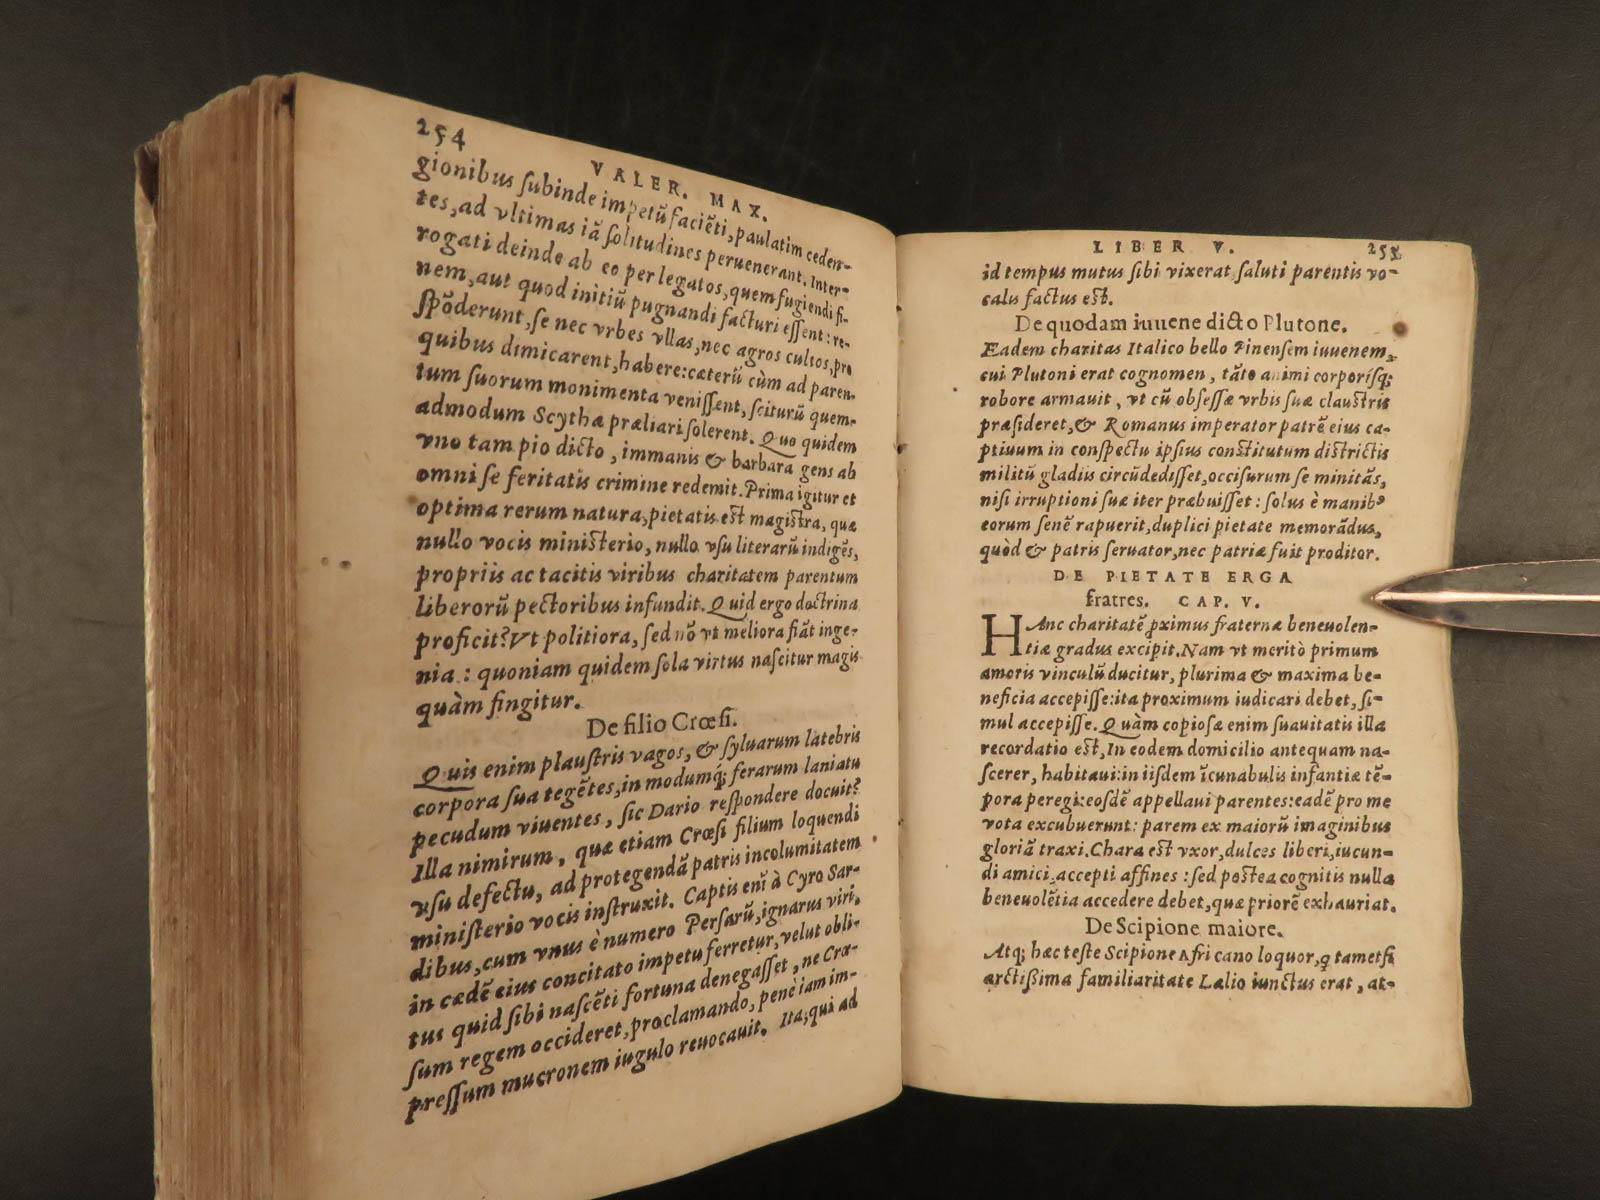 254
VALER. MAX.
gionibus ſubinde impetū faciēti, paulatim ceden-
tes, ad vltimas iā ſolitudines peruenerant. Inter-
rogati deinde ab eo per legatos, quem fugiendi fi-
nem, aut quod initiū pugnandi facturi eſſent: re-
ſpōderunt, ſe nec vrbes vllas, nec agros cultos, pro
quibus dimicarent, habere: cæterū cùm ad paren-
tum ſuorum monimenta veniſſent, ſciturū quem-
admodum Scythæ præliari ſolerent. Quo quidem
vno tam pio dicto, immanis & barbara gens ab
omni ſe feritatis crimine redemit. Prima igitur et
optima rerum natura, pietatis eſt magiſtra, quæ
nullo vocis miniſterio, nullo vſu literarū indigēs,
propriis ac tacitis viribus charitatem parentum
liberorū pectoribus infundit. Quid ergo doctrina
proficit? Vt politiora, ſed nō vt meliora fiāt inge-
nia: quoniam quidem ſola virtus naſcitur magis
quàm fingitur.
De filio Crœſi.
Quis enim plauſtris vagos, & ſyluarum latebris
corpora ſua tegētes, in modumq́; ferarum laniatu
pecudum viuentes, ſic Dario reſpondere docuit?
Illa nimirum, quæ etiam Crœſi filium loquendi
vſu defectu, ad protegendā patris incolumitatem
miniſterio vocis inſtruxit. Captis eni à Cyro Sar-
dibus, cum vnus è numero Perſarū, ignarus viri,
in cædē eius concitato impetu ferretur, velut obli-
tus quid ſibi naſcēti fortuna denegaſſet, ne Crœ-
ſum regem occideret, proclamando, penè iam im-
preſſum mucronem iugulo reuocauit. Ita, qui ad
LIBER V.
255
id tempus mutus ſibi vixerat, ſaluti parentis vo-
calis factus eſt.
De quodam iuuene dicto Plutone.
Eadem charitas Italico bello Pinenſem iuuenem,
cui Plutoni erat cognomen, tāto animi corporiſq;
robore armauit, vt cū obſeſſæ vrbis ſuæ clauſtris
præſideret, & Romanus imperator patrē eius ca-
ptiuum in conſpectu ipſius conſtitutum diſtrictis
militū gladiis circūdediſſet, occiſurum ſe minitās,
niſi irruptioni ſuæ iter præbuiſſet: ſolus è manibꝰ
eorum ſenē rapuerit, duplici pietate memorādus,
quòd & patris ſeruator, nec patriæ fuit proditor.
DE PIETATE ERGA
fratres. CAP. V.
HAnc charitatē ꝓximus fraternæ beneuolen-
tiæ gradus excipit. Nam vt meritò primum
amoris vinculū ducitur, plurima & maxima be-
neficia accepiſſe: ita proximum iudicari debet, ſi-
mul accepiſſe. Quàm copioſæ enim ſuauitatis illa
recordatio eſt, In eodem domicilio antequam na-
ſcerer, habitaui: in iiſdem īcunabulis infantiæ tē-
pora peregi: eoſdē appellaui parentes: eadē pro me
vota excubuerunt: parem ex maiorū imaginibus
gloriā traxi. Chara eſt vxor, dulces liberi, iucun-
di amici, accepti affines: ſed poſtea cognitis nulla
beneuolētia accedere debet, quæ priorē exhauriat.
De Scipione maiore.
Atq; hæc teſte Scipione Africano loquor, ꝗ tametſi
arctiſſima familiaritate Lælio iunctus erat, at-